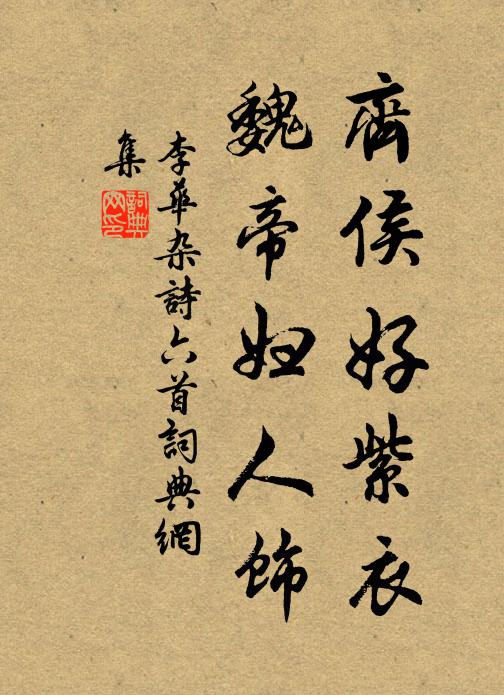 齊侯好紫衣
魏帝婦人飾
李華杂詩六首詞典網
集
詞典
网印